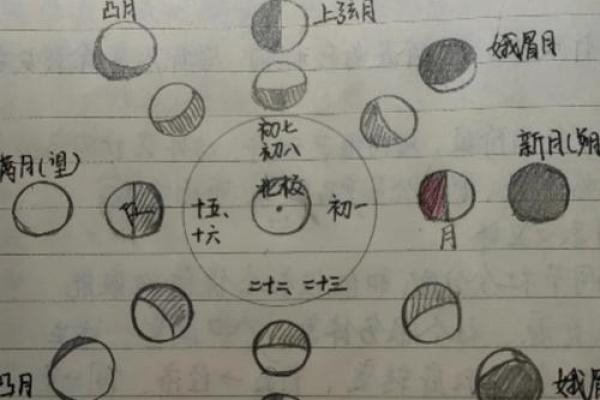 凸月
上弦月
娥眉月
初七
初八
新月(朔
满月(望)
北极
十五、
十六
初一
月
二十二、二十三
凸月
娥眉